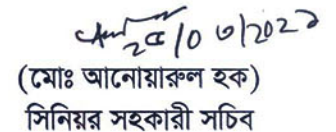 ২৫/০৩/২০২১
(মোঃ আনোয়ারুল হক)
সিনিয়র সহকারী সচিব